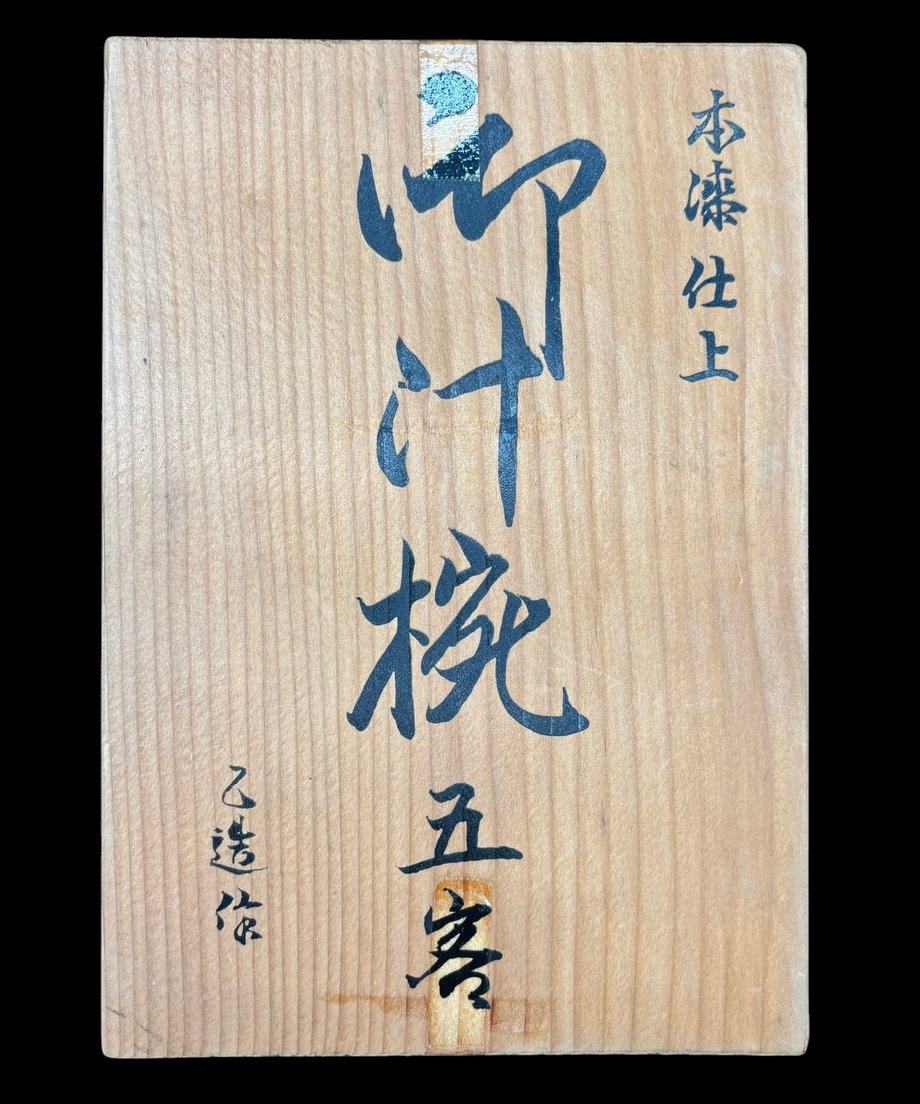 本漆仕上
御汁椀五客
乙造